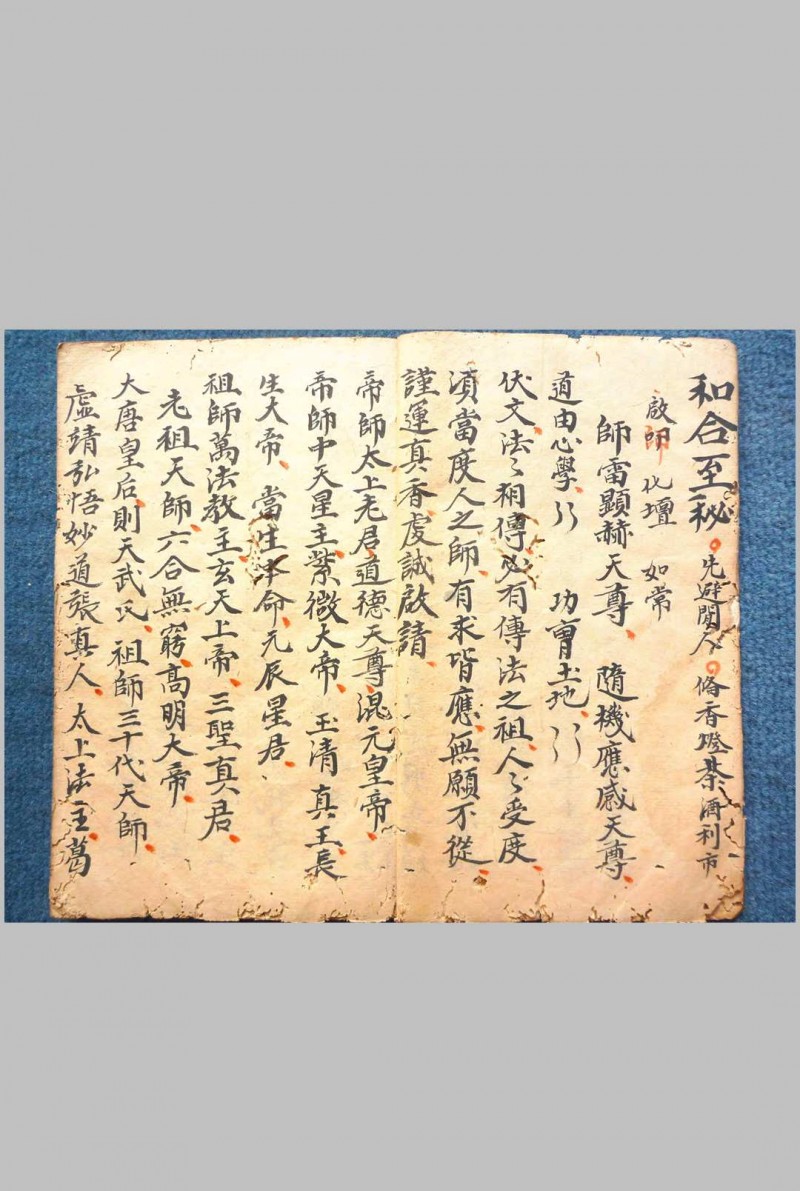 和合至秘。先避閒人。俻香燈茶酒利市
啟師 化壇 如常
師雷顯赫天尊、 隨機應感天尊、
道由心學、〻 功曹土地、〻
伏文、法〻相傳、必有傳法之祖、人〻受度、
須當度人之師、有求皆應、無願不從、
謹運真香、虔誠啟請、
帝師太上老君、道德天尊、混元皇帝、
帝師中天星主、紫微大帝、 玉清真王、長
生大帝、 當生本命、元辰星君、
祖師萬法教主、玄天上帝、三聖真君、
老祖天師、六合無窮、高明大帝、
大唐皇后、則天武氏、祖師三十代天師、
虛靖弘悟妙道張真人、太上法主、葛